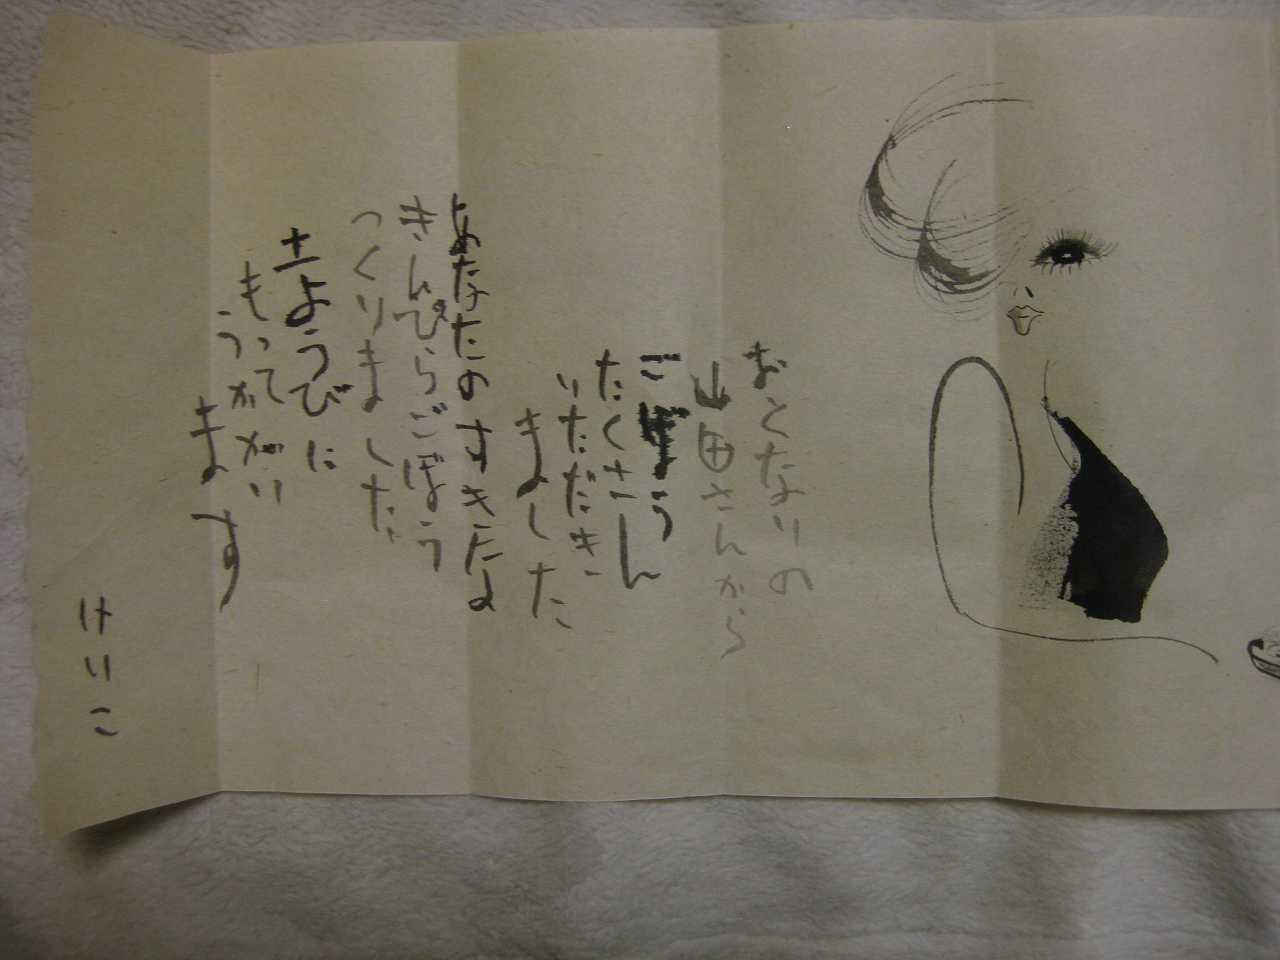 おとなりの
山田さんから
ごぼうん
たくさん
いただき
ました
あなたのすきなよ
きんぴらごぼう
つくりました
土ようびに
もってがい
うかがい
ます
けいこ